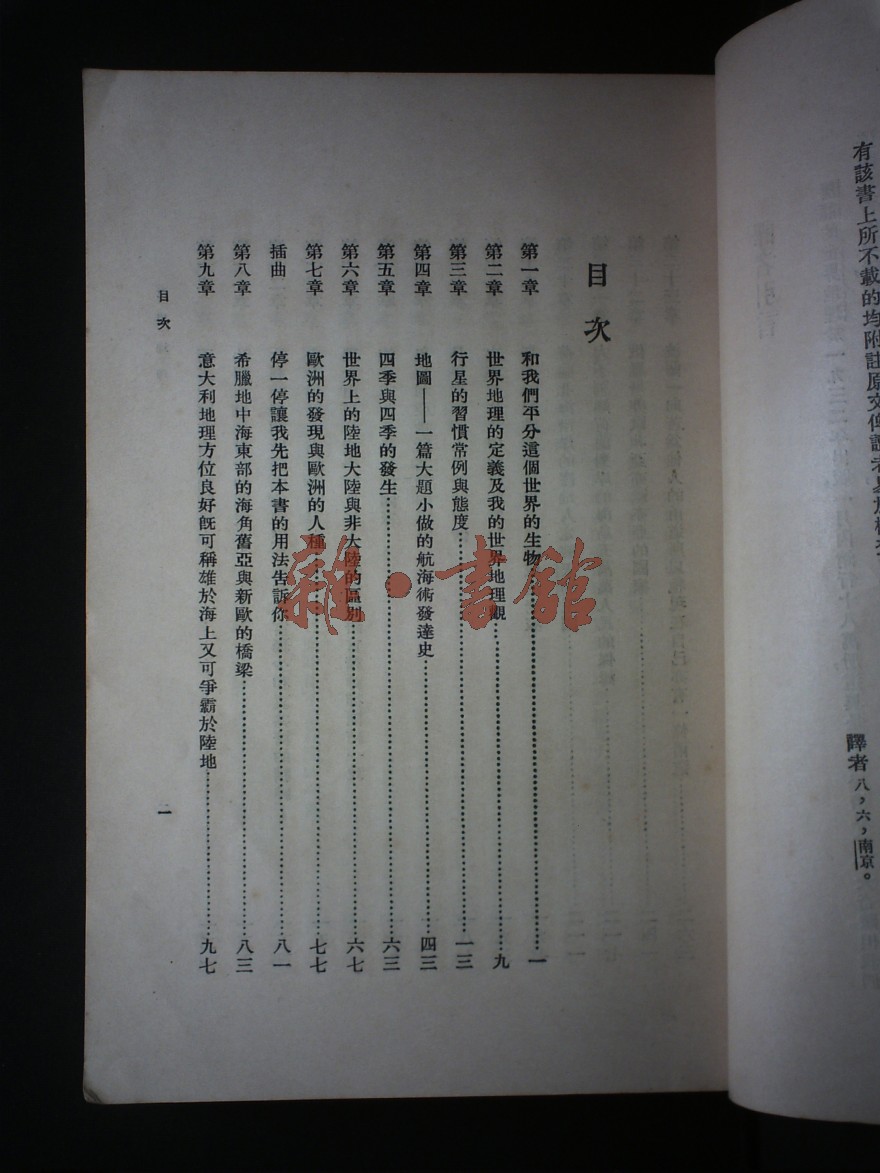 有該書上所不載的均附註原文
譯者八，六，南京。
目次
第一章 和我們平分這個世界的生物 一
第二章 世界地理的定義及我的世界地理觀 九
第三章 行星的習慣常例與態度 一三
第四章 地圖——一篇大題小做的航海術發達史 四三
第五章 四季與四季的發生 六三
第六章 世界上的陸地大陸與非大陸的區別 六七
第七章 歐洲的發現與歐洲的人種 七七
插曲 停一停讓我先把本書的用法告訴你 八一
第八章 希臘地中海東部的海角舊亞與新歐的橋梁 八三
第九章 意大利地理方位良好既可稱雄於海上又可爭霸於陸地 九七
目次
一
雜·書館